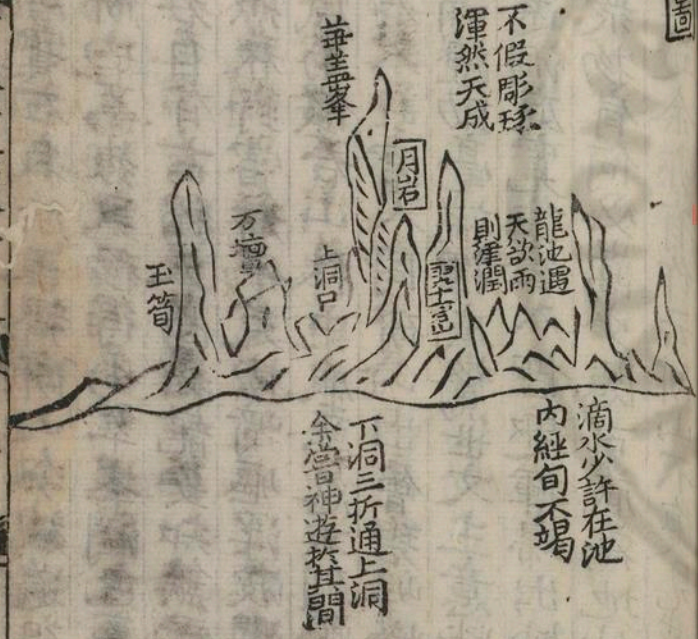 圖
不假彫琢
渾然天成
華盖峯
月岩
龍池遇
天欲雨
則津潤
上洞口
万壇
玉筍
滴水少許在池
内經旬不竭
下洞三折通上洞
余嘗神遊於其間